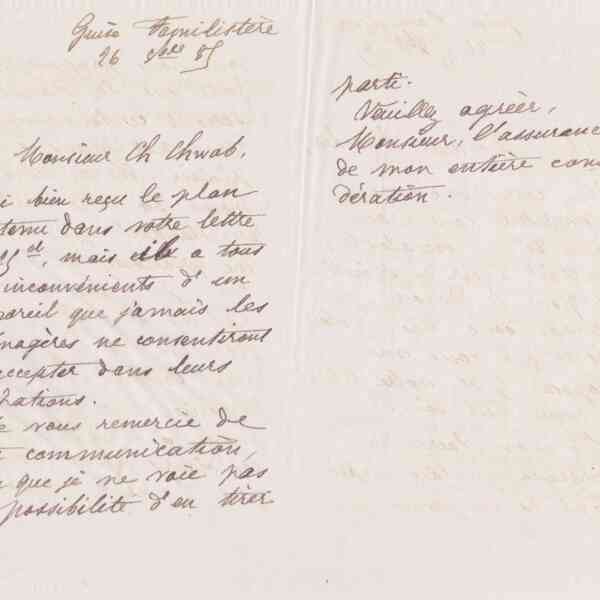 Guise Familistère
26 9bre 85
Monsieur Ch Chwab,
i bien reçu le plan
tenu dans votre lettre
25 ct, mais il a tous
inconvénients d'un
pareil que jamais les
nagères ne consentiront
accepter dans leurs
tations.
e vous remercie de
communication,
que je ne voie pas
possibilité d'en tirer
parti.
Veuillez agréer,
Monsieur, l'assurance
de mon entière cons
dération.